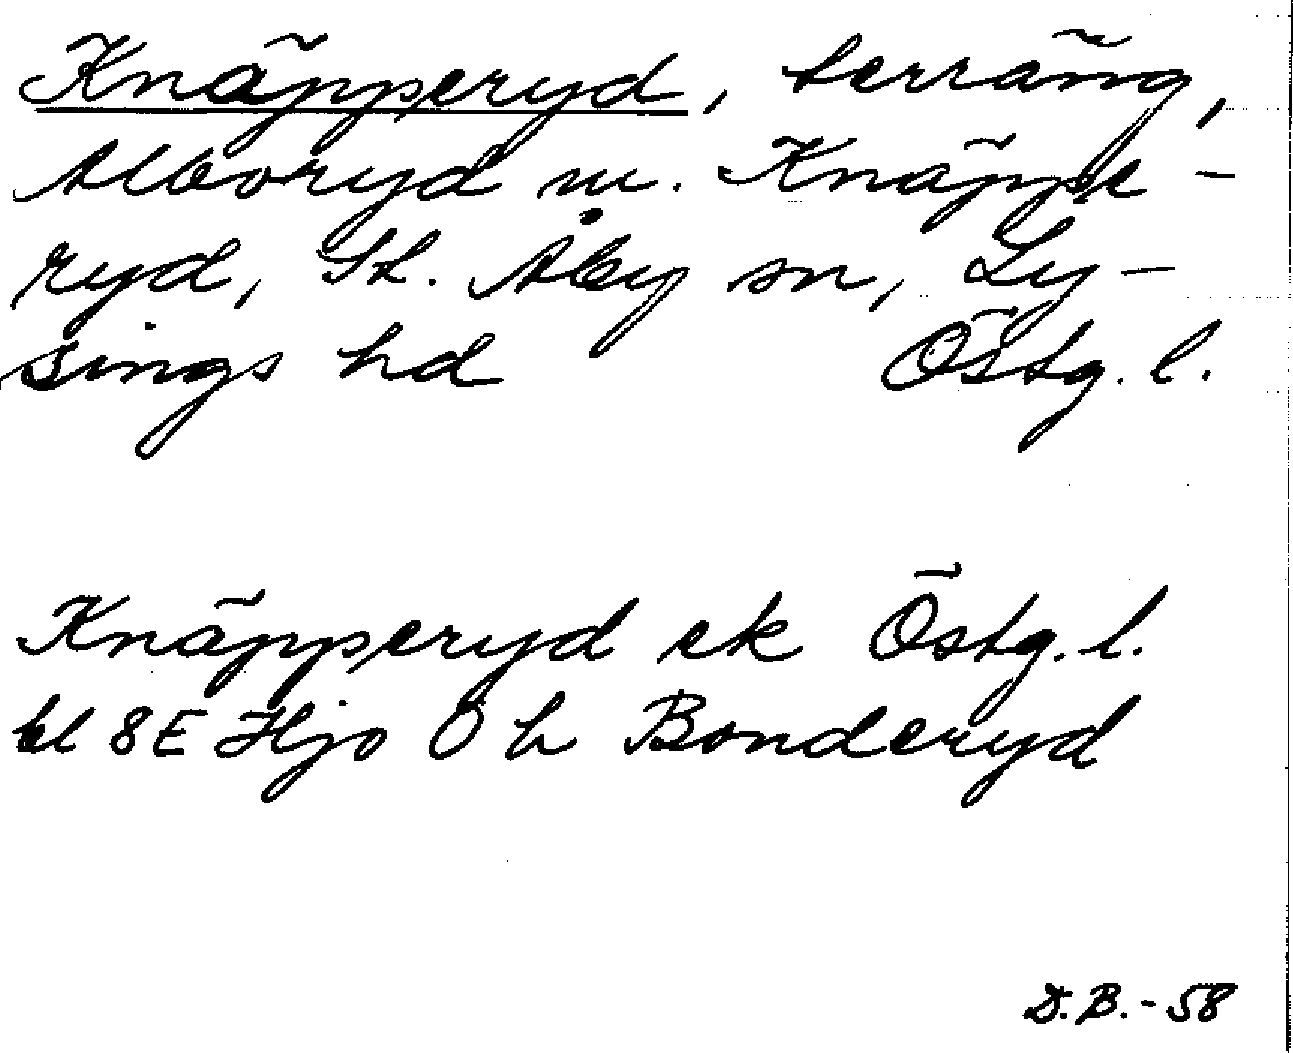 Knäpperyd, terräng,
Alboryd m. Knäppe-
ryd, St. Åby sn, Ly-
sings hd Östg. l.
Knäpperyd ek Östg. l.
bl 8E Hjo Ö h Bonderyd
D.B.-58